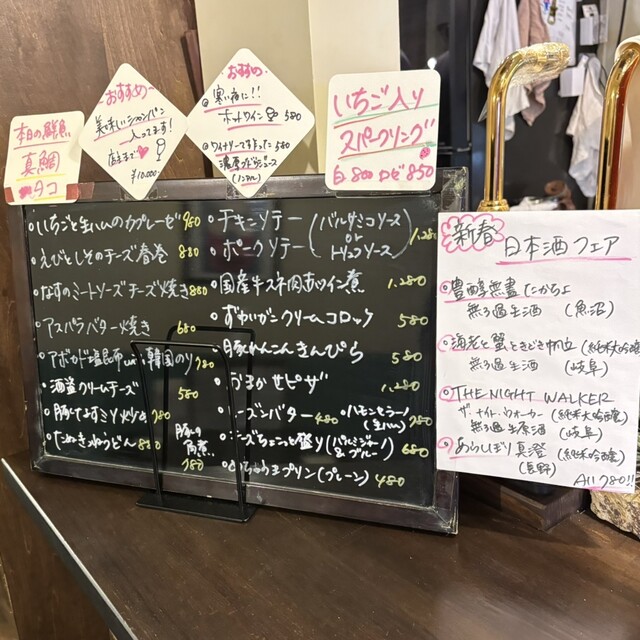 本日の鮮魚
真鯛
タコ
おすすめ〜
美味しいシャンパン
入ってます!
店主まで
¥10,000-
おすすめ
寒い夜に!!
ホットワイン 580
ワイナリーで作った 580
濃厚ブドウジュース
(ノンアル)
いちご入り
スパークリング
白 800 ロゼ 850
・いちごと生ハムのカプレーゼ 980
・えびとしそのチーズ春巻 880
・なすのミートソースチーズ焼き 880
・アスパラバター焼き 680
・アボカド塩昆布 with 韓国のり 780
・酒盗クリームチーズ 580
・豚となすミソ炒め 780
うどん 880
豚の角煮 780
・チキンソテー (バルサミコソース
・ポークソテー or トリュフソース) 1,280
・国産牛スネ肉赤ワイン煮 1,280
・ずわいがにクリームコロッケ 580
・豚れんこんきんぴら 580
ピザ 1,280
レーズンバター 480 ・ハモンセラーノ(生ハム) 780
チーズちょこっと盛り(パルミジャーノ & ブルー) 680
プリン(プレーン) 480
新春
日本酒フェア
・豊醇無盡たかちよ
無ろ過生酒 (魚沼)
・海老と蟹ときどき帆立 (純米大吟醸)
無ろ過生酒 (岐阜)
・THE NIGHT WALKER
ザ・ナイト・ウォーカー (純米大吟醸)
無ろ過生原酒 (岐阜)
・あらばしり真澄 (純米吟醸)
(長野)
All 780!!